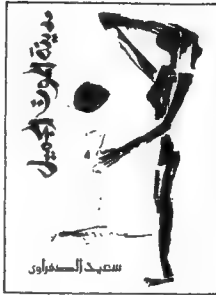 مدينة الموت الجميل
سعيد الكفراوي